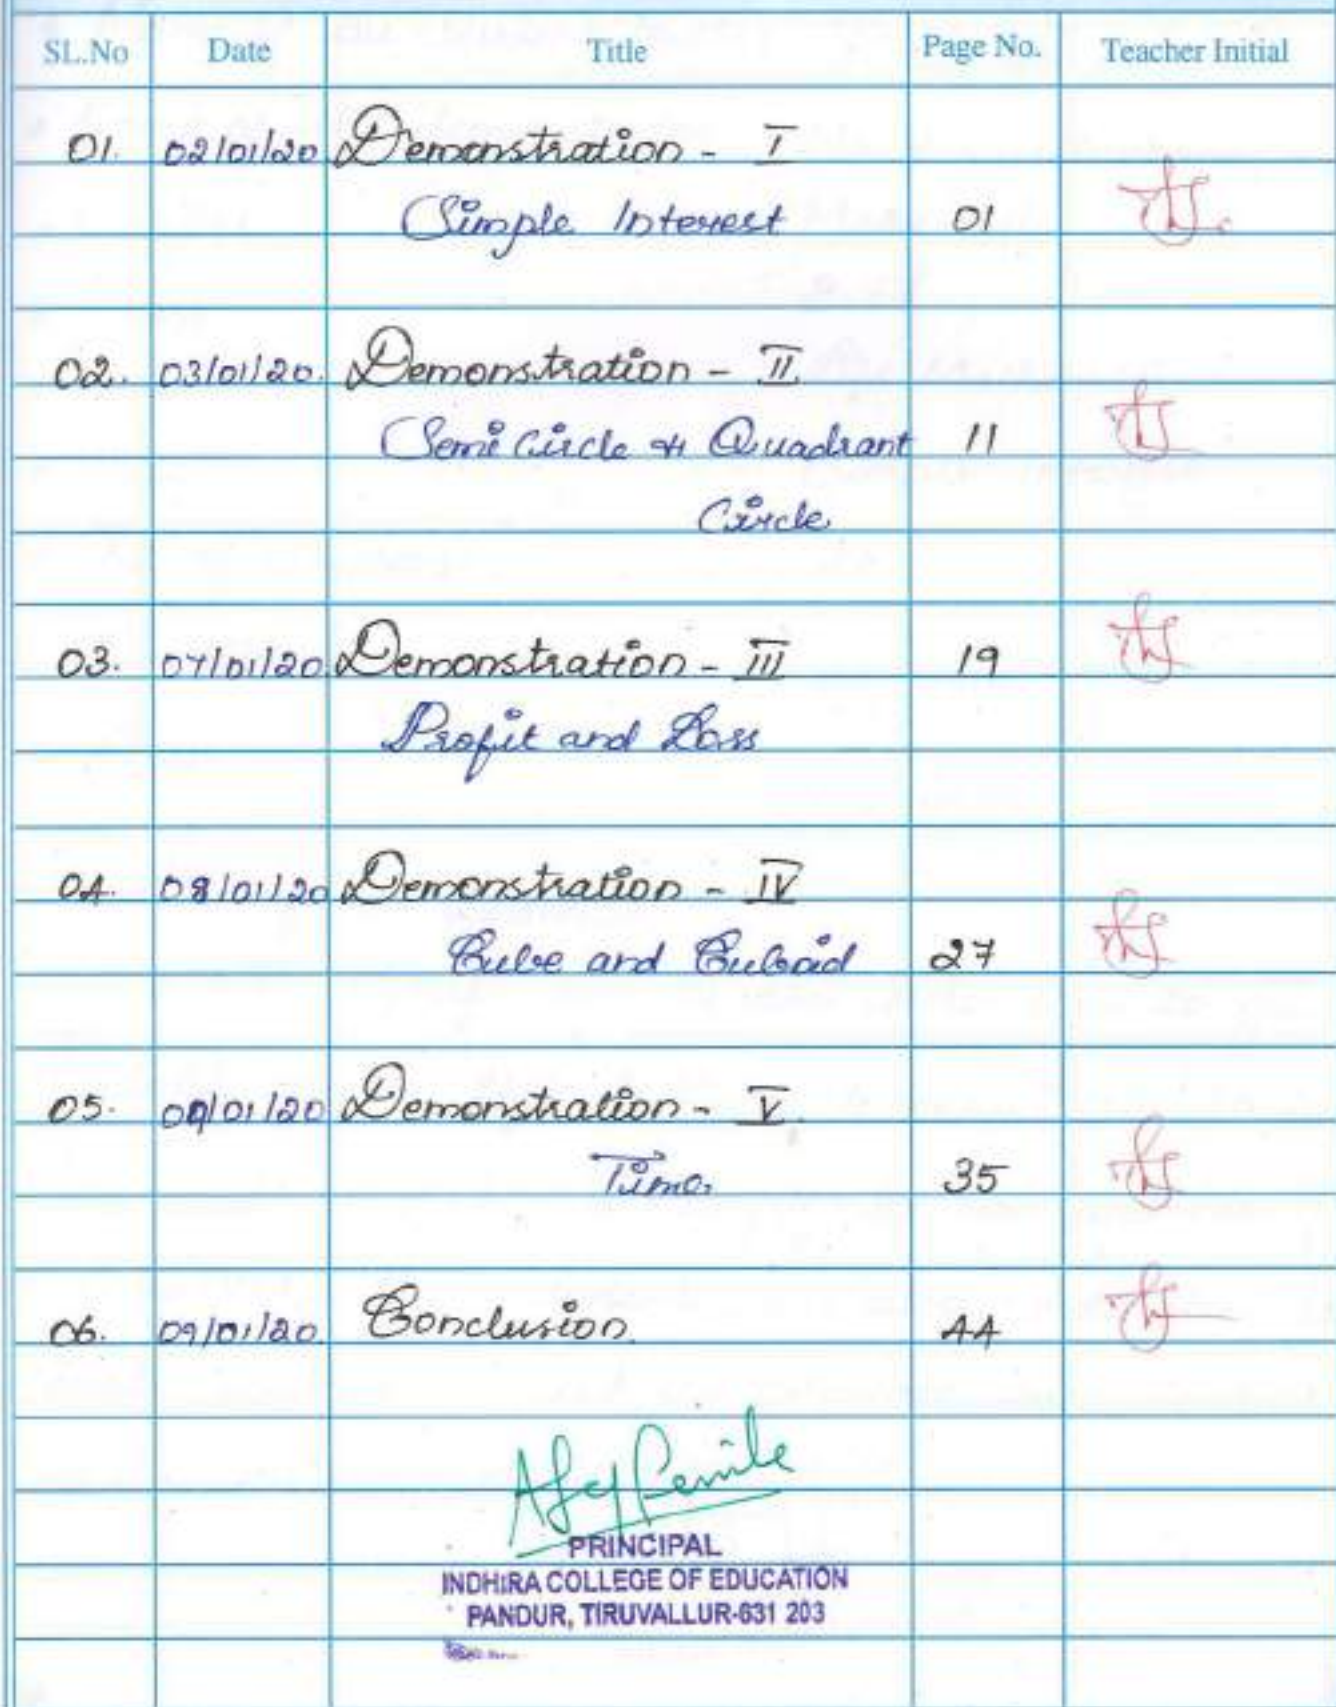 SL.No Date Title Page No. Teacher Initial
01. 02/01/20 Demonstration - I
Simple Interest 01
02. 03/01/20. Demonstration - II
Semi Circle & Quadrant 11
Circle
03. 07/01/20. Demonstration - III 19
Profit and Loss
04. 08/01/20 Demonstration - IV
Cube and Cuboid 27
05. 09/01/20 Demonstration - V
Time. 35
06. 09/01/20. Conclusion. 44
PRINCIPAL
INDHIRA COLLEGE OF EDUCATION
PANDUR, TIRUVALLUR-631 203